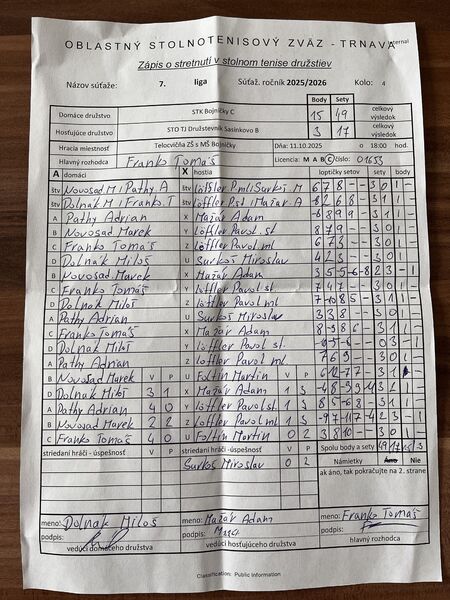 OBLASTNÝ STOLNOTENISOVÝ ZVÄZ - TRNAVA
Zápis o stretnutí v stolnom tenise družstiev
Názov súťaže: 7. liga Súťaž. ročník 2025/2026 Kolo: 4
Body Sety
Domáce družstvo STK Bojničky C 15 49 celkový výsledok
Hosťujúce družstvo STO TJ Družstevník Sasinkovo B 3 17 celkový výsledok
Hracia miestnosť Telocvičňa ZŠ s MŠ Bojničky Dňa: 11.10.2025 o 18:00 hod.
Hlavný rozhodca Franko Tomáš Licencia: M A B C číslo: 01653
A domáci X hostia loptičky setov sety body
štv Novosad M / Pathy A štv Löffler P.ml/Surkoš M 6 7 8 - - 3 0 1 -
štv Dolnák M / Franko T štv Löffler P.st / Mažár A 3 1 1 -
A Pathy Adrian X Mažár Adam 3 1 1 -
B Novosad Marek Y Löffler Pavol st. 8 7 9 - - 3 0 1 -
C Franko Tomáš Z Löffler Pavol ml 6 7 3 - - 3 0 1 -
D Dolnák Miloš U Surkoš Miroslav 4 2 3 - - 3 0 1 -
B Novosad Marek X Mažár Adam 2 3 - 1
C Franko Tomáš Y Löffler Pavol st. 7 4 7 - - 3 0 1 -
D Dolnák Miloš Z Löffler Pavol ml 3 1 1 -
A Pathy Adrian U Surkoš Miroslav 3 3 8 - - 3 0 1 -
C Franko Tomáš X Mažár Adam 3 1 1 -
D Dolnák Miloš Y Löffler Pavol st. 0 3 - 1
A Pathy Adrian Z Löffler Pavol ml 7 6 9 - - 3 0 1 -
B Novosad Marek V P U Foltín Martin V P
D Dolnák Miloš 3 1 X Mažár Adam 1 3
A Pathy Adrian 4 0 Y Löffler Pavol st. 1 3 3 1 1 -
B Novosad Marek 2 2 Z Löffler Pavol ml 1 3 2 3 - 1
C Franko Tomáš 4 0 U Foltín Martin 0 2 3 8 10 - - 3 0 1 -
striedaní hráči - úspešnosť V P striedaní hráči - úspešnosť V P Spolu body a sety 49 17 15 3
Surkoš Miroslav 0 2 Námietky Áno Nie
ak áno, tak pokračujte na 2. strane
meno: Dolnák Miloš meno: Mažár Adam meno: Franko Tomáš
podpis: podpis: podpis:
vedúci domáceho družstva vedúci hosťujúceho družstva hlavný rozhodca
Classification: Public Information